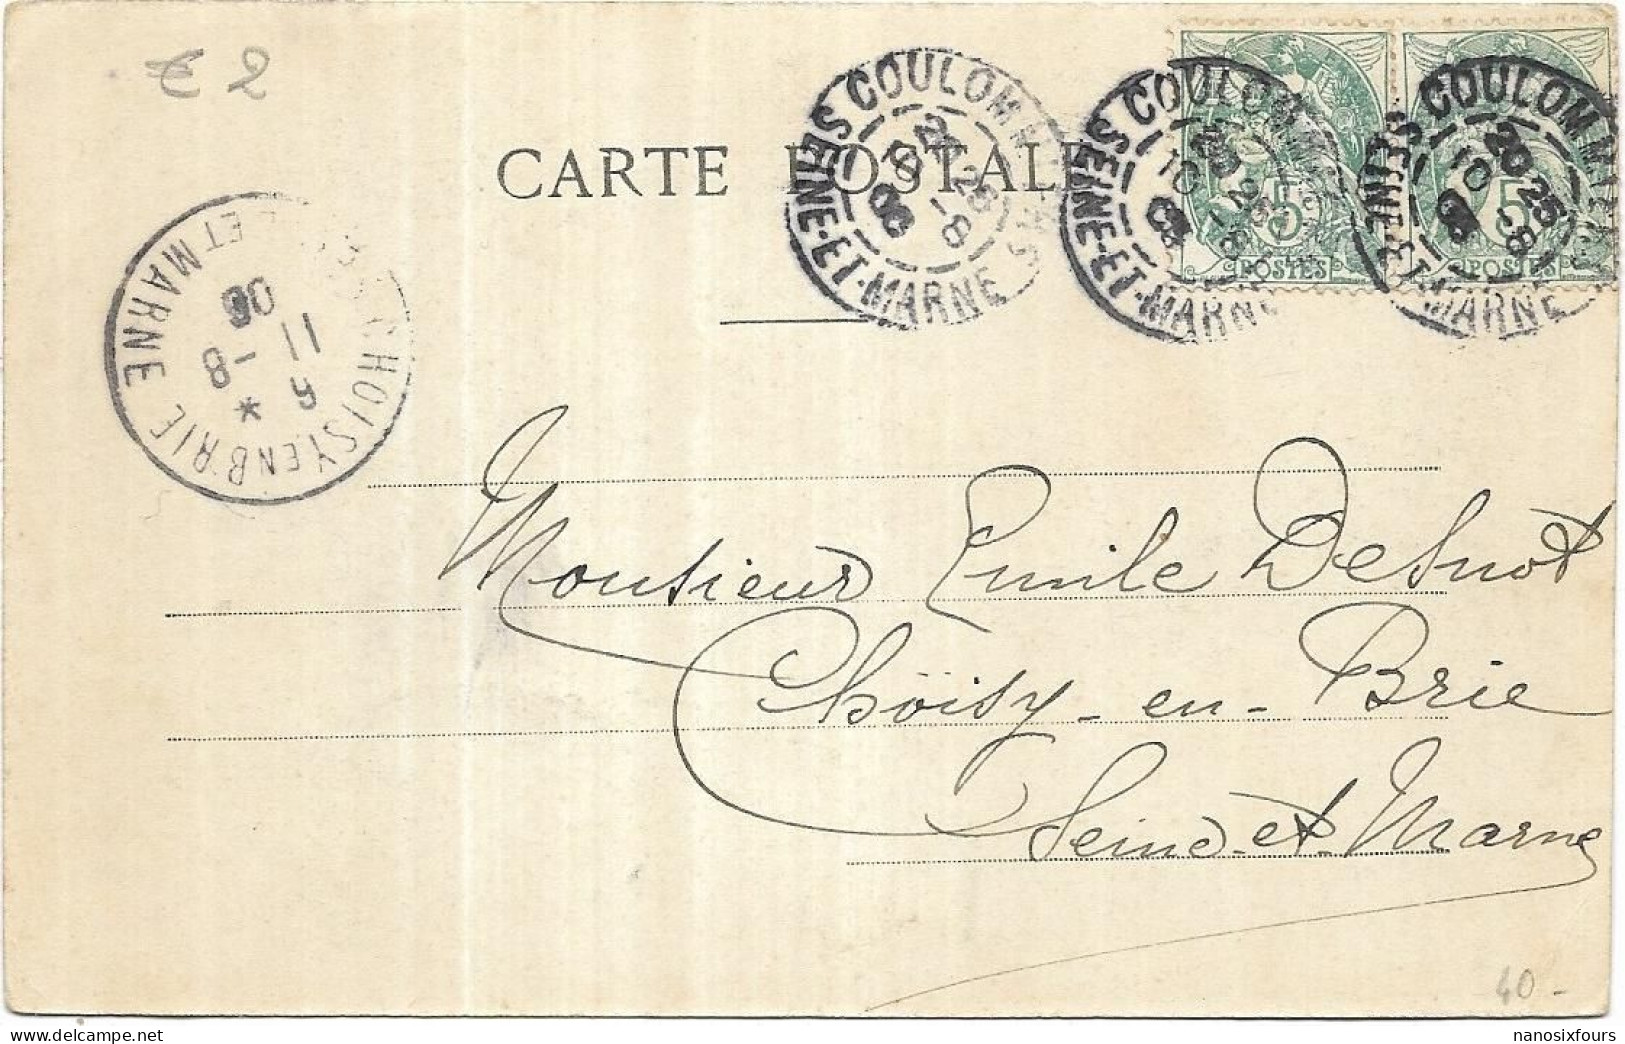 € 2
CARTE POSTALE
COULOMMIERS
SEINE-ET-MARNE
20 25
10 -8
06
COULOMMIERS
SEINE-ET-MARNE
20 25
10 -8
5
POSTES
COULOMMIERS
SEINE-ET-MARNE
20 25
10 -8
5
POSTES
CHOISY EN BRIE
ET MARNE
9 *
11 -8
06
Monsieur Emile Desnot
Choisy-en-Brie
Seine-et-Marne
40 -
nanosixfours